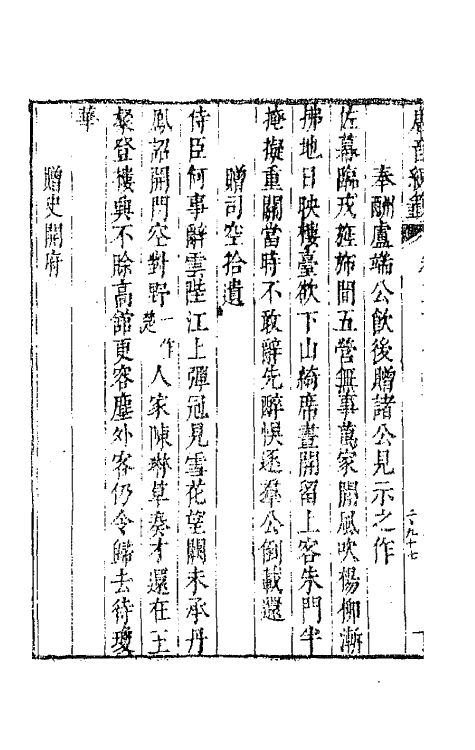 奉酬盧端公飲後贈諸公見示之作
佐幕臨戎旌旆間五營無事萬家閒風吹楊柳漸
拂地日映樓臺欲下山綺席晝開留上客朱門半
掩擬重關當時不敢辭先醉悞逐羣公倒載還
贈司空拾遺
侍臣何事辭雲陛江上彈冠見雪花望闕未承丹
鳳詔開門空對野一作楚人家陳琳草奏才還在王
粲登樓興不賒高館更容塵外客仍令歸去待瓊
華
贈史開府